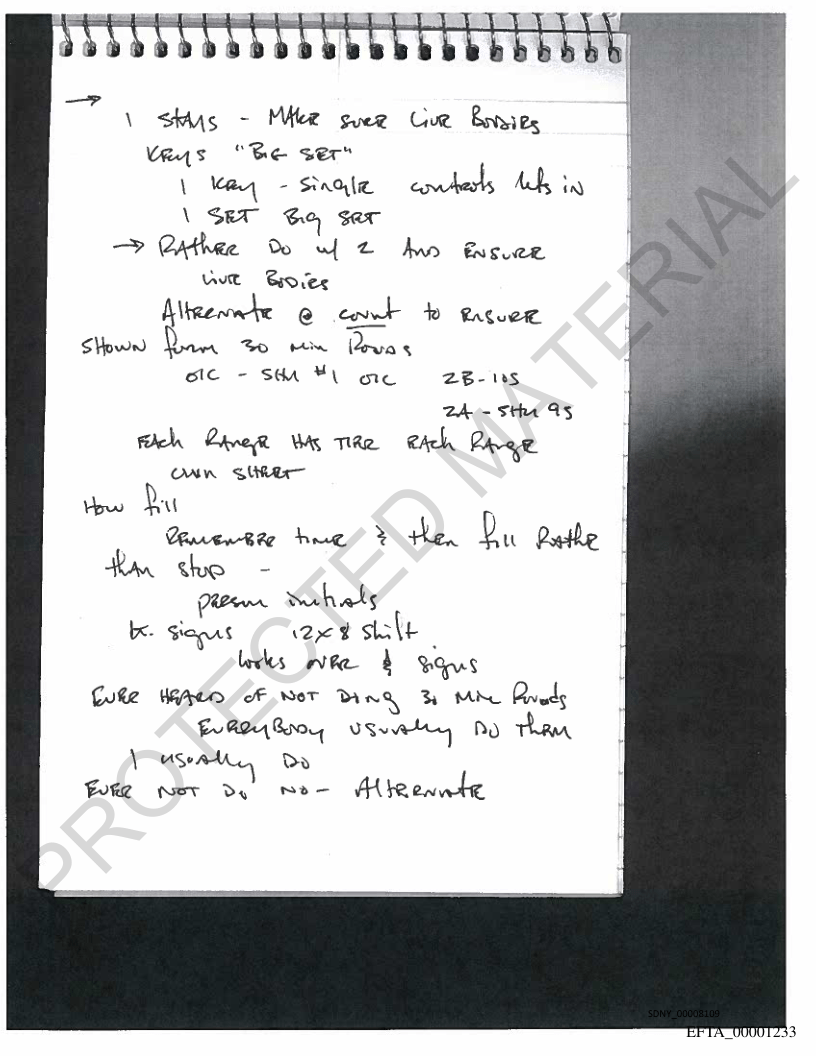 →
1 STAYS - MAKE SURE LIVE BODIES
KEYS "BIG SET"
1 KEY - SINGLE controls lets in
1 SET BIG SET
→ RATHER DO w/ 2 AND ENSURE
LIVE BODIES
Alternate @ count to ENSURE
SHOWN form 30 min Rounds
OIC - SHU #1 OIC 2B-10S
2A - SHU 9S
EACH RANGE HAS TIER EACH RANGE
OWN SHEET
How fill
REMEMBER time & then fill Rather
than stop -
person initials
Lt. signs 12x8 Shift
looks over & signs
EVER HEARD OF NOT DING 30 Min Rounds
EVERYBODY USUALLY DO THEM
I USUALLY DO
EVER NOT DO NO - AlTERNATE
PROTECTED MATERIAL
SDNY_00008109
EFTA_00001233